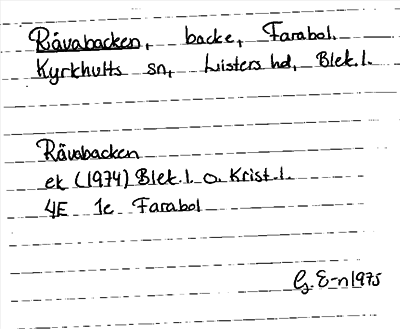 Rävabacken, backe, Farabol.
Kyrkhults sn, Listers hd, Blek.l.
Rävabacken
ek (1974) Blek.l. o. Krist.l.
4E 1e Farabol
G. E-n 1975